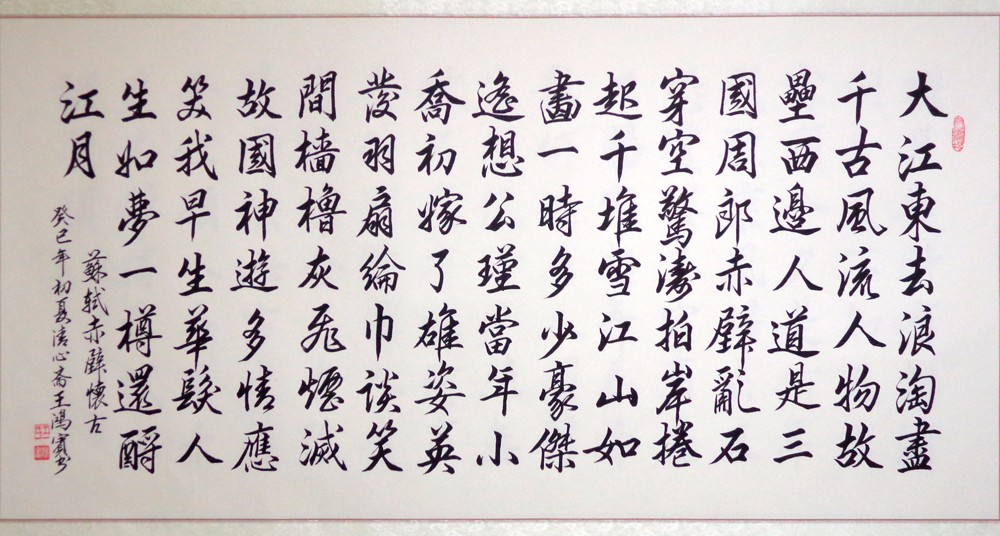 大江東去浪淘盡
千古風流人物故
壘西邊人道是三
國周郎赤壁亂石
穿空驚濤拍岸捲
起千堆雪江山如
畫一時多少豪傑
遙想公瑾當年小
喬初嫁了雄姿英
發羽扇綸巾談笑
間檣櫓灰飛煙滅
故國神遊多情應
笑我早生華髮人
生如夢一樽還酹
江月
蘇軾赤壁懷古
癸巳年初夏清心齋王鴻賓書